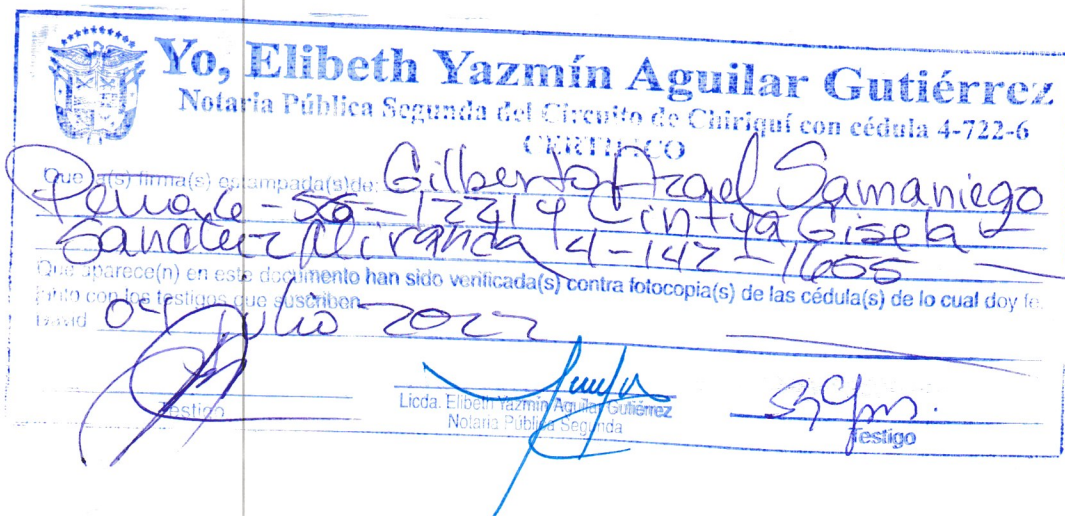 Yo, Elibeth Yazmín Aguilar Gutiérrez
Notaria Pública Segunda del Circuito de Chiriquí con cédula 4-722-6
CERTIFICO
Que la(s) firma(s) estampada(s) de: Gilberto Azael Samaniego
Cintya Gisela
Sanchez Miranda 4-142-1655
Que aparece(n) en este documento han sido verificada(s) contra fotocopia(s) de las cédula(s) de lo cual doy fe.
junto con los testigos que suscriben.
David 04 Julio 2022
Testigo
Licda. Elibeth Yazmín Aguilar Gutiérrez
Notaria Pública Segunda
Testigo